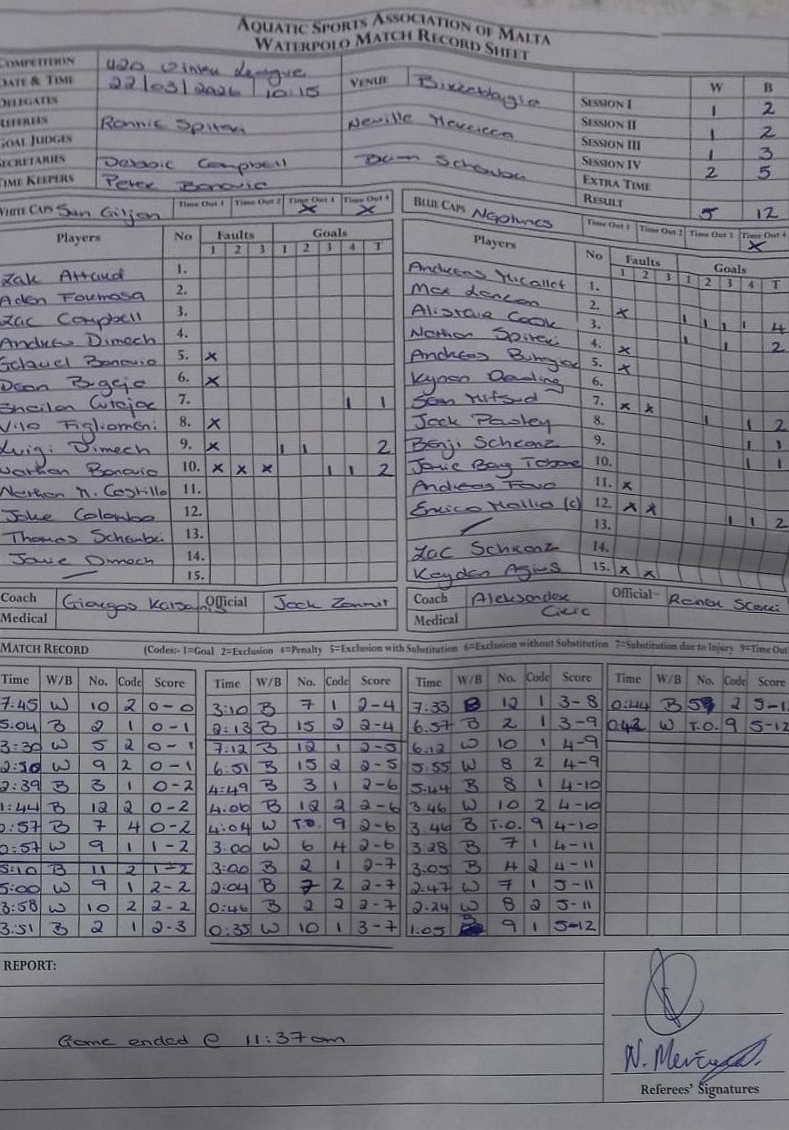 AQUATIC SPORTS ASSOCIATION OF MALTA
WATERPOLO MATCH RECORD SHEET
COMPETITION U20 Winter League
DATE & TIME 22/03/2026 10:15 VENUE
DELEGATES
REFEREES Ronnie Spiteri Neville
GOAL JUDGES
SECRETARIES Debbie Campbell
TIME KEEPERS Peter Bonavia
W B
SESSION I 1 2
SESSION II 1 2
SESSION III 1 3
SESSION IV 2 5
EXTRA TIME
RESULT 5 12
WHITE CAPS San Giljan Time Out 1 Time Out 2 Time Out 3 X Time Out 4 X
Players No Faults Goals
1 2 3 1 2 3 4 T
Zak Attard 1.
Aden Formosa 2.
Zac Campbell 3.
Andrew Dimech 4.
Gabriel Bonavia 5. x
Dean Bugeja 6. x
Cutajar 7. 1 1
8. x
Luigi Dimech 9. x 1 1 2
Nathan Bonavia 10. x x x 1 1 2
Nathan 11.
Jake Colombo 12.
Thomas 13.
Jamie Dimech 14.
15.
Coach Giorgos Official Jack Zammit
Medical
BLUE CAPS Neptunes Time Out 1 Time Out 2 Time Out 3 Time Out 4 X
Players No Faults Goals
1 2 3 1 2 3 4 T
Andreas Micallef 1.
Max 2. x
Alistair Cook 3. 1 1 1 1 4
Nathan Spiteri 4. x 1 1 2
Andreas Buhagiar 5. x
Kynan Dowling 6.
7. x x
Jack Pawley 8. 1 1 2
Benji Schranz 9. 1 1
Jamie Bay Tabone 10. 1 1
Andreas Fava 11. x
Enrico Mallia (c) 12. x x
13. 1 1 2
Zac Schranz 14.
Keyden Agius 15. x x
Coach Aleksandar Ciric Official
Medical
MATCH RECORD (Codes:- 1=Goal 2=Exclusion 4=Penalty 5=Exclusion with Substitution 6=Exclusion without Substitution 7=Substitution due to Injury 9=Time Out
Time W/B No. Code Score
7:45 W 10 2 0-0
5:04 B 2 1 0-1
3:30 W 5 2 0-1
2:50 W 9 2 0-1
2:39 B 3 1 0-2
1:44 B 12 2 0-2
0:57 B 7 4 0-2
0:57 W 9 1 1-2
5:10 B 11 2 1-2
5:00 W 9 1 2-2
3:58 W 10 2 2-2
3:51 B 2 1 2-3
Time W/B No. Code Score
3:10 B 7 1 2-4
2:13 B 15 2 2-4
7:12 B 12 1 2-5
6:51 B 15 2 2-5
4:49 B 3 1 2-6
4:06 B 12 2 2-6
4:04 W T.O. 9 2-6
3:00 W 6 4 2-6
3:00 B 2 1 2-7
2:04 B 7 2 2-7
0:46 B 2 2 2-7
0:35 W 10 1 3-7
Time W/B No. Code Score
7:33 B 12 1 3-8
6:57 B 2 1 3-9
6:12 W 10 1 4-9
5:55 W 8 2 4-9
5:44 B 8 1 4-10
3:46 W 10 2 4-10
3:46 B T.O. 9 4-10
3:28 B 7 1 4-11
3:05 B 4 2 4-11
2:47 W 7 1 5-11
2:24 W 8 2 5-11
1:05 B 9 1 5-12
Time W/B No. Code Score
0:44 B 5 2 5-1
0:42 W T.O. 9 5-12
REPORT:
Game ended @ 11:37am
Referees' Signatures